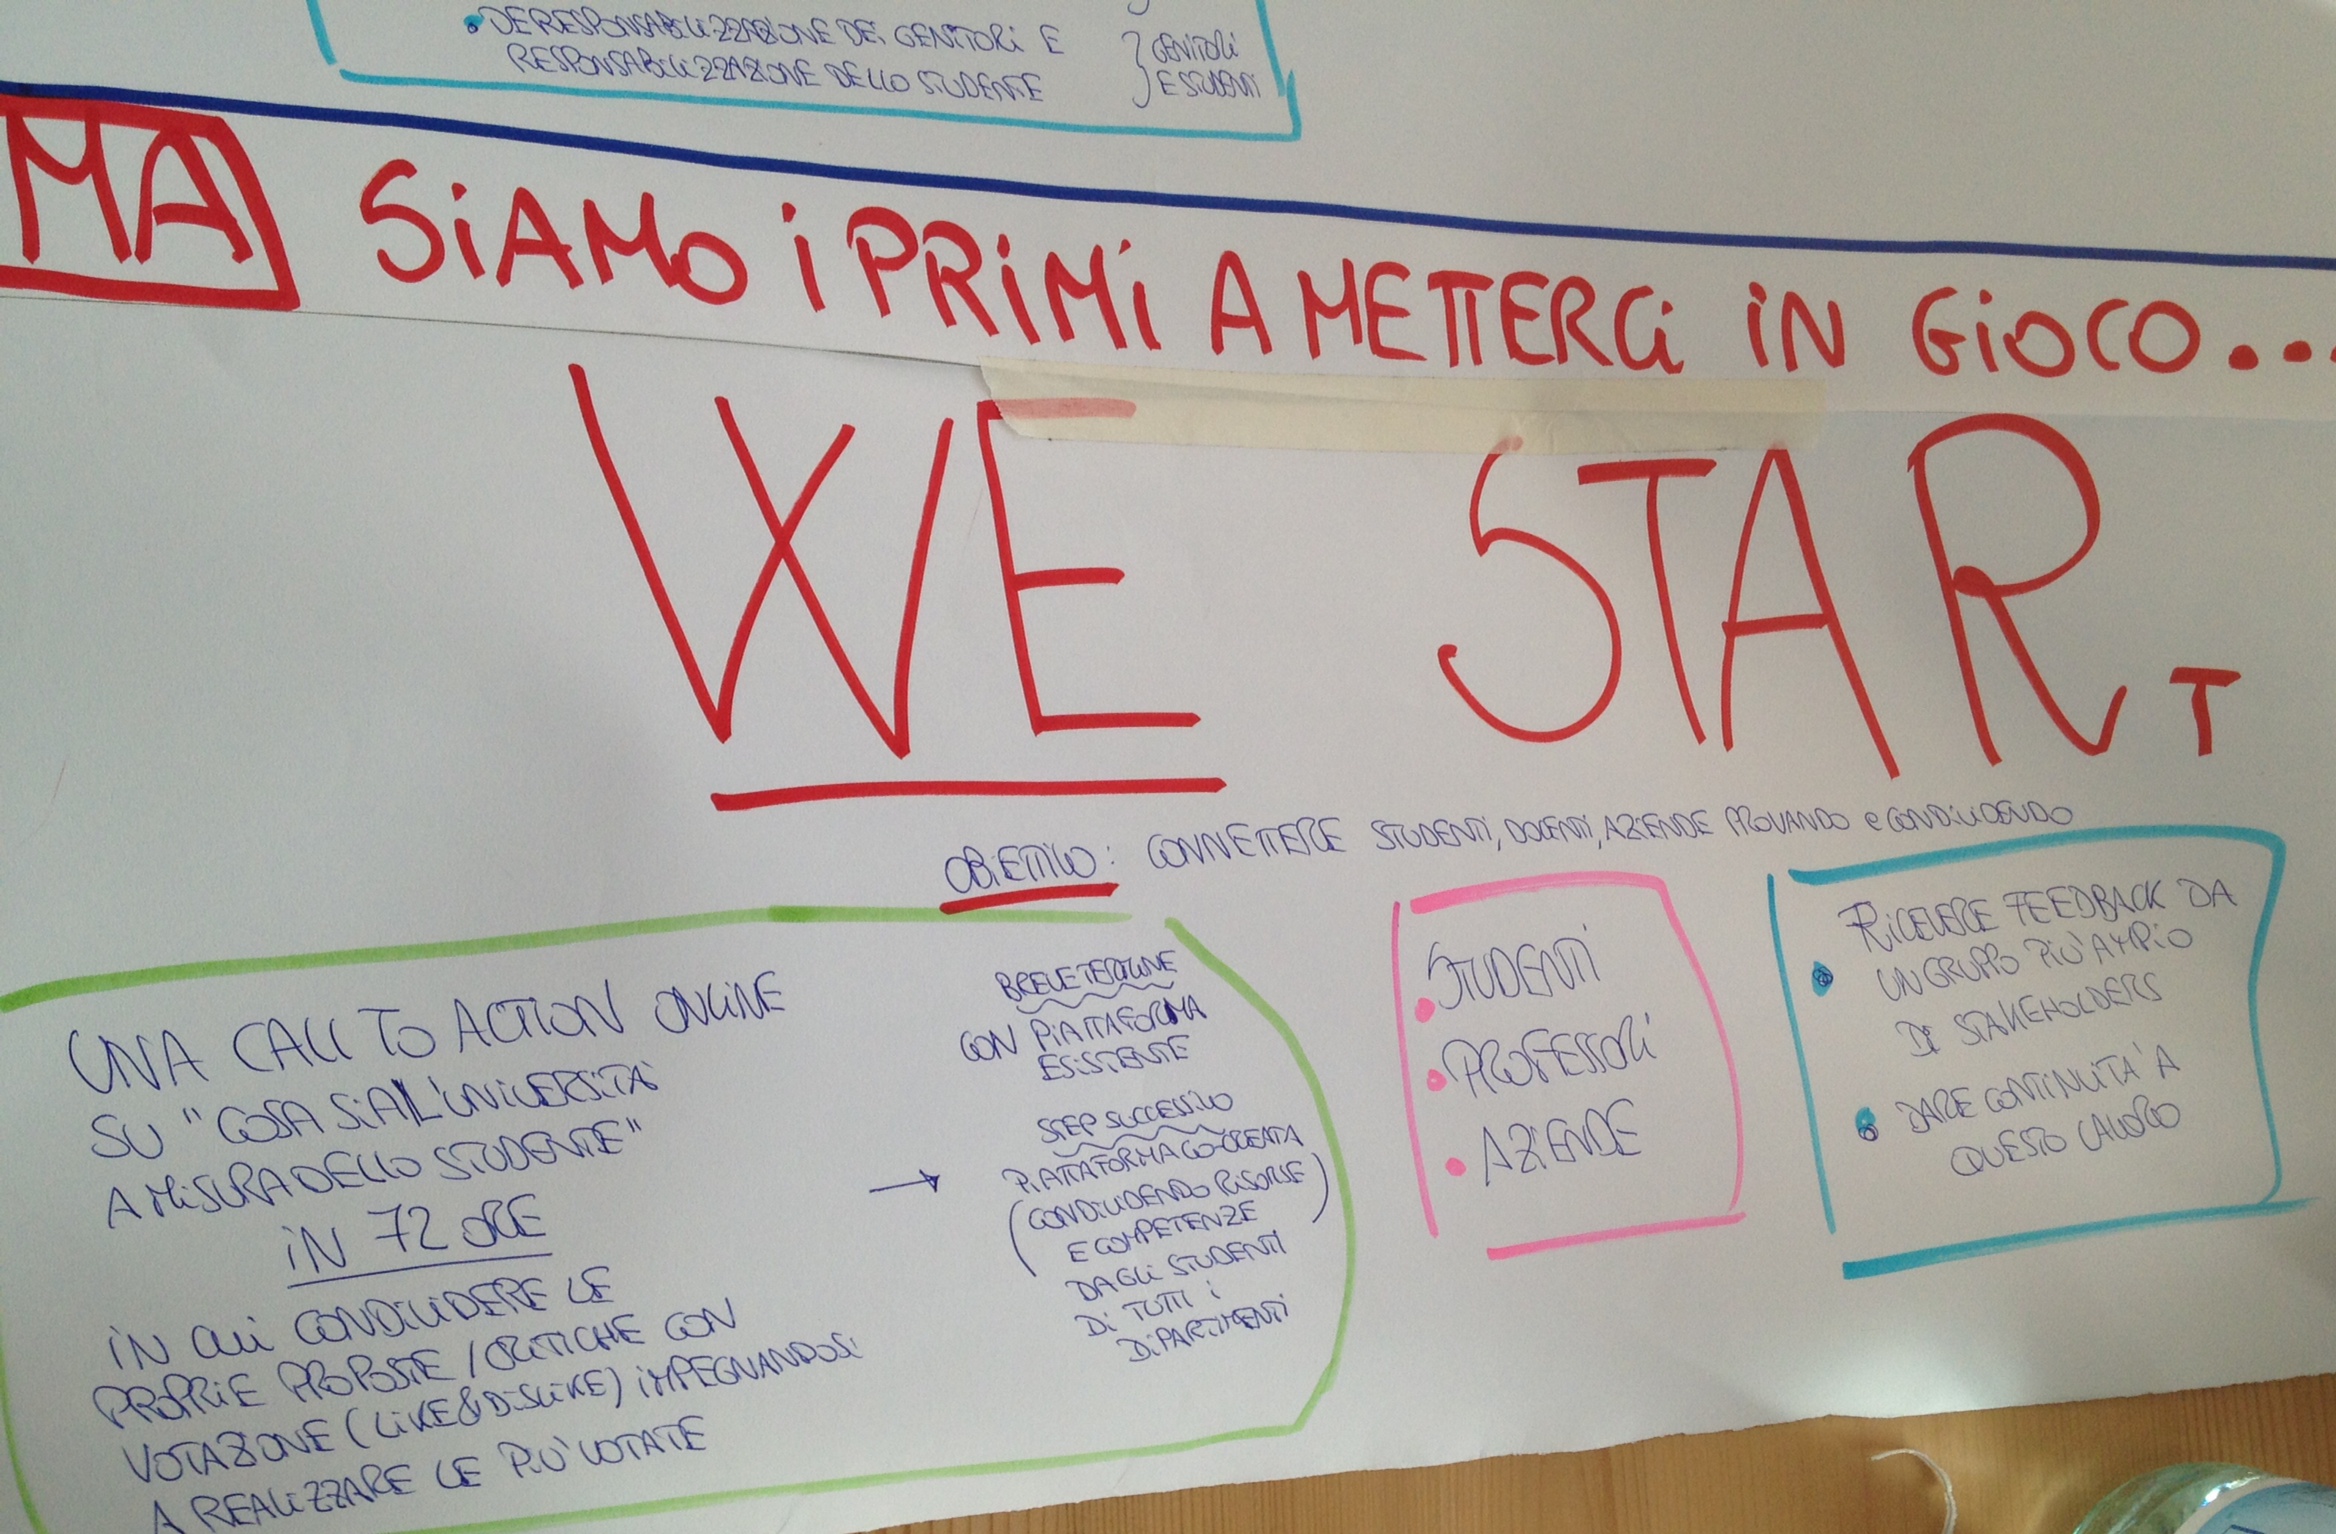 DERESPONSABILIZZAZIONE DEI GENITORI E
RESPONSABILIZZAZIONE DELLO STUDENTE
GENITORI
E STUDENTI
MA SIAMO I PRIMI A METTERCI IN GIOCO...
WE START
OBIETTIVO: CONNETTERE STUDENTI, DOCENTI, AZIENDE PROVANDO e CONDIVIDENDO
UNA CALL TO ACTION ONLINE
SU "COSA SIA L'UNIVERSITÀ
A MISURA DELLO STUDENTE"
IN 72 ORE
IN CUI CONDIVIDERE LE
PROPRIE PROPOSTE / CRITICHE CON
VOTAZIONE (LIKE & DISLIKE) IMPEGNANDOSI
A REALIZZARE LE PIÙ VOTATE
→
BREVE TERMINE
CON PIATTAFORMA
ESISTENTE
STEP SUCCESSIVO
PIATTAFORMA CO-CREATA
(CONDIVIDENDO RISORSE
E COMPETENZE)
DAGLI STUDENTI
DI TUTTI I
DIPARTIMENTI
• STUDENTI
• PROFESSORI
• AZIENDE
• RICEVERE FEEDBACK DA
UN GRUPPO PIÙ AMPIO
DI STAKEHOLDERS
• DARE CONTINUITÀ A
QUESTO LAVORO